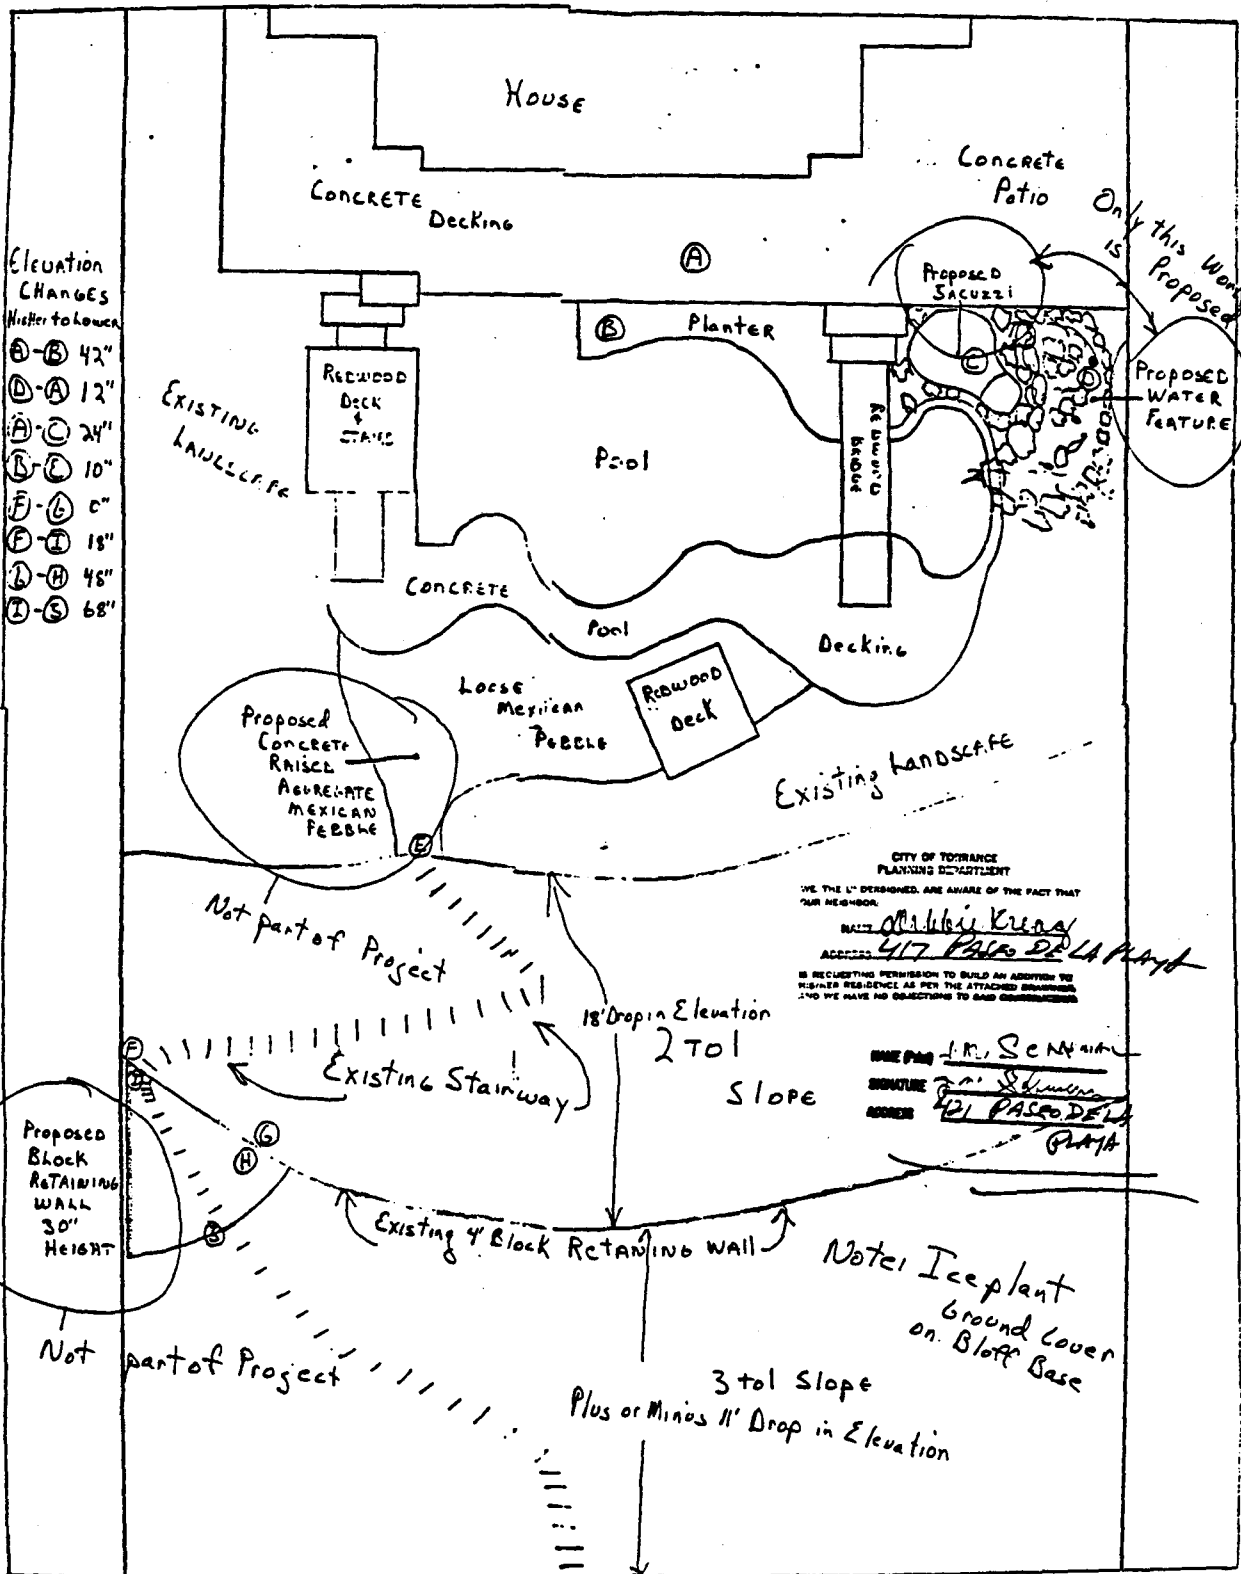 HOUSE
CONCRETE
Decking
CONCRETE
Patio
Only this Work
is Proposed
Elevation
CHANGES
Higher to Lower
A-B 42"
D-A 12"
A-C 24"
B-E 10"
F-G 0"
F-I 18"
G-H 48"
I-S 68"
A
Proposed
JACUZZI
B
Planter
C
D
Proposed
WATER
FEATURE
REDWOOD
DECK
&
STAIRS
EXISTING
LANDSCAPE
Pool
REDWOOD
BRIDGE
CONCRETE
Pool
Decking
Loose
Mexican
Pebble
REDWOOD
Deck
Proposed
CONCRETE
RAISED
AGGREGATE
MEXICAN
PEBBLE
E
Existing Landscape
Not part of Project
CITY OF TORRANCE
PLANNING DEPARTMENT
WE THE UNDERSIGNED, ARE AWARE OF THE FACT THAT
OUR NEIGHBOR:
NAME
ADDRESS 417 PASEO DE LA PLAYA
IS REQUESTING PERMISSION TO BUILD AN ADDITION TO
HIS/HER RESIDENCE AS PER THE ATTACHED DRAWINGS
AND WE HAVE NO OBJECTIONS TO SAID CONSTRUCTION
NAME (Print) J.M.
SIGNATURE
ADDRESS 421 PASEO DE LA
PLAYA
18' Drop in Elevation
2 TO 1
SLOPE
F
Existing Stairway
G
H
Proposed
Block
RETAINING
WALL
30"
HEIGHT
S
Existing 4' Block Retaning Wall
Note: Iceplant
Ground Cover
on Bloff Base
Not part of Project
3 to 1 Slope
Plus or Minus 11' Drop in Elevation